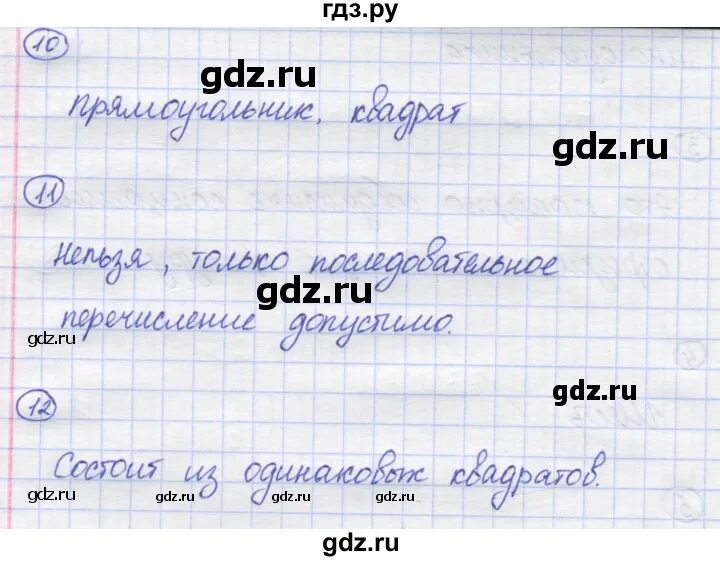 гдз.ру
10
gdz.ru
прямоугольник, квадрат
gdz.ru
11
Нельзя, только последовательное
gdz.ru
перечисление допустимо.
gdz.ru
gdz.ru
12
Состоит из одинаковых квадратов.
gdz.ru gdz.ru gdz.ru gdz.ru
gdz.ru